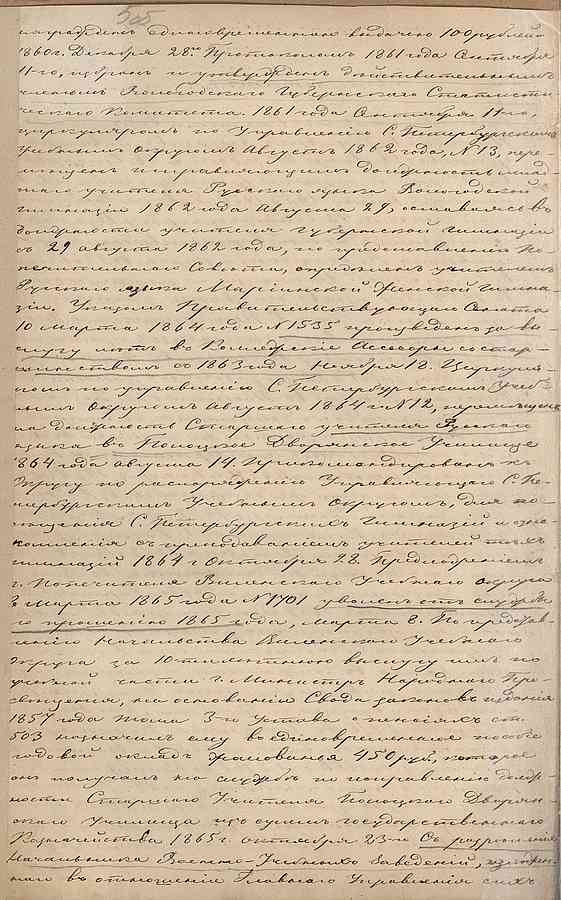 505
награжденъ единовременною выдачею 100 рублей
1860 г. Декабря 28го. Протоколомъ 1861 года Сентября
11-го, избранъ и утвержденъ действительнымъ
членомъ Вологодскаго Губернскаго Статисти-
ческаго Комитета. 1861 года Сентября 11го,
циркуляромъ по Управленію С. Петербургскимъ
Учебнымъ Округомъ Августъ 1862 года, N 13, пере-
мещенъ исправляющимъ должность млад-
шаго учителя Русскаго языка Вологодской
гимназіи 1862 года Августа 29, оставаясь въ
должности учителя губернской гимназіи
съ 29 августа 1862 года, по представленію По-
печительнаго Совета, определенъ учителемъ
Русскаго языка Маріинской Женской гимна-
зіи. Указомъ Правительствующаго Сената
10 марта 1864 года N 1535 произведенъ за вы-
слугу летъ въ Коллежскіе Ассесоры со стар-
шинствомъ съ 1863 года Ноября 18. Циркуля-
ромъ по управленію С. Петербургскимъ Учеб-
нымъ Округомъ Августъ 1864 г. N 12, перемещенъ
на должность Старшаго учителя Русскаго
языка въ Полоцкое Дворянское Училище
1864 года августа 14. Прикомандированъ къ
Округу по распоряженію Управляющаго С. Пе-
тербургскимъ Учебнымъ Округомъ, для по-
сещенія С. Петербургскихъ Гимназій и озна-
комленія съ преподаваніемъ учителей техъ
гимназій 1864 г. Октября 28. Предложеніемъ
г. Попечителя Виленскаго Учебнаго округа
8 марта 1865 года N 1701 уволенъ отъ службы
по прошенію 1865 года, Марта 8. По представ-
ленію Начальства Виленскаго Учебнаго
Округа за 10тилетнюю выслугу имъ по
учебной части г. Министръ Народнаго Про-
свещенія, на основаніи Свода законовъ изданія
1857 года тома 3-го Устава о пенсіяхъ ст.
503 назначилъ ему въ единовременное пособіе
годовой окладъ жалованья 450 руб., которое
онъ получалъ на службе по исправленію долж-
ности Старшаго Учителя Полоцкаго Дворян-
скаго Училища изъ суммъ государственнаго
Казначейства 1865 г. октября 23-го. Съ разрешенія
Начальника Военно-Учебныхъ Заведеній, изложен-
наго въ отношеніи Главнаго Управленія сихъ